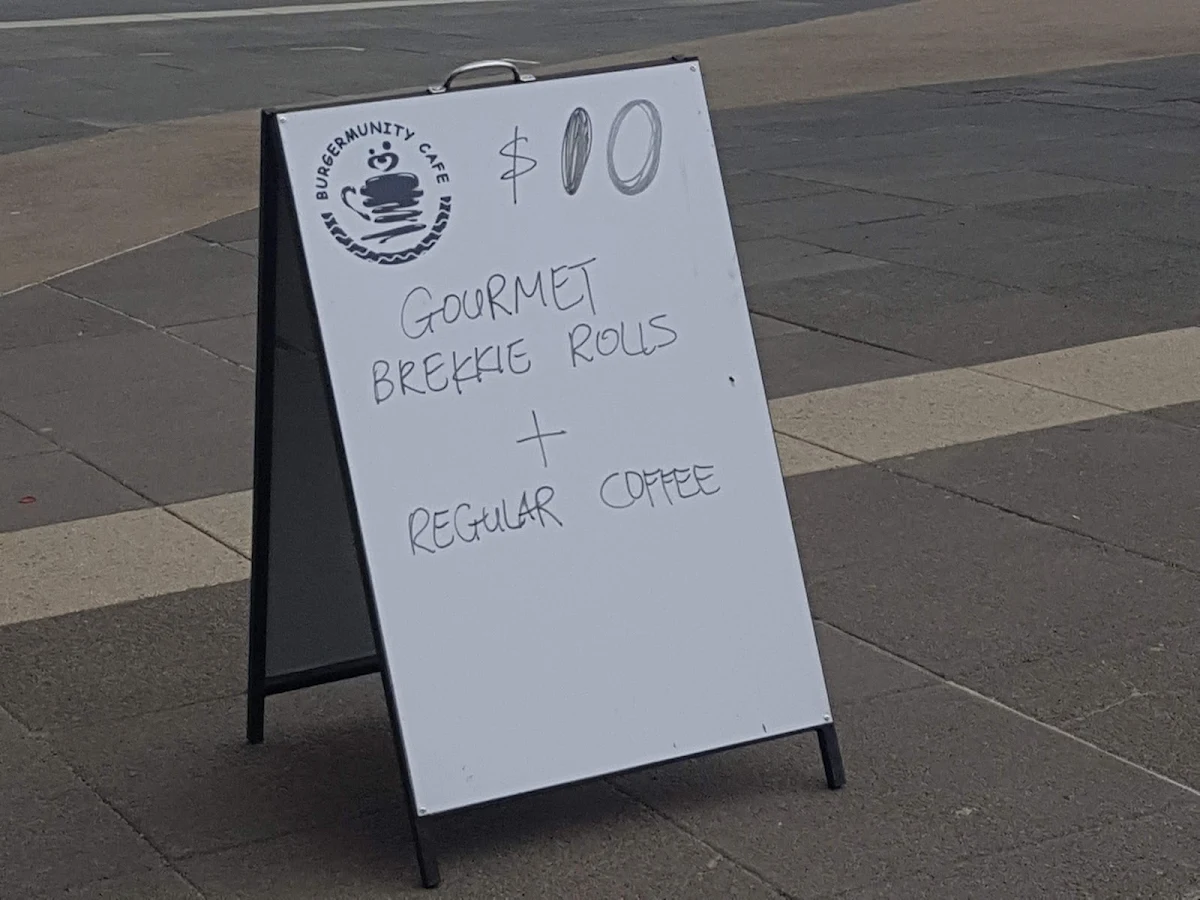 BURGERMUNITY CAFE
$10
GOURMET
BREKKIE ROLLS
+
REGULAR COFFEE